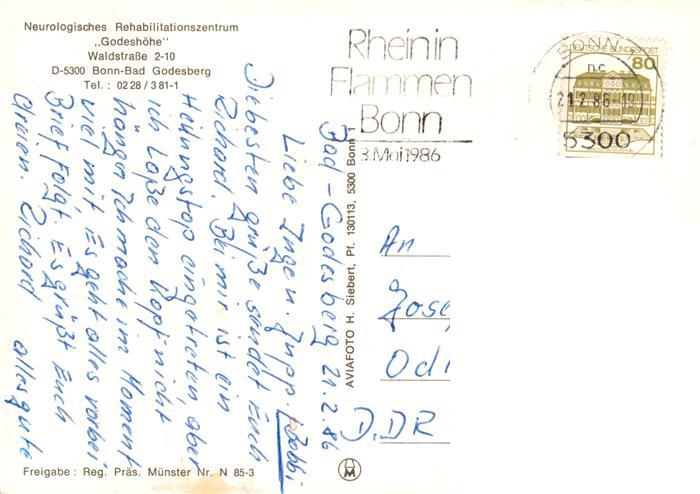 Neurologisches Rehabilitationszentrum
„Godeshöhe"
Waldstraße 2-10
D-5300 Bonn-Bad Godesberg
Tel.: 0228/381-1
Rhein in
Flammen
Bonn
3. Mai 1986
BONN
21.2.86.-19
5300
DEUTSCHE BUNDESPOST
80
Bad-Godesberg 21.2.86
Liebe Inge u. Jupp. Bobbi
Die besten grüße sendet Euch
Richard. Bei mir ist ein
Heilungstop eingetreten, aber
ich laße den Kopf nicht
hängen Ich mache im Moment
viel mit Es geht alles vorbei
Brief folgt. Es grüßt Euch
dreien. Richard alles gute
AVIAFOTO H. Siebert, Pf. 130113, 5300 Bonn 1
An
Jose
Odi
D.DR
Freigabe: Reg. Präs. Münster Nr. N 85-3